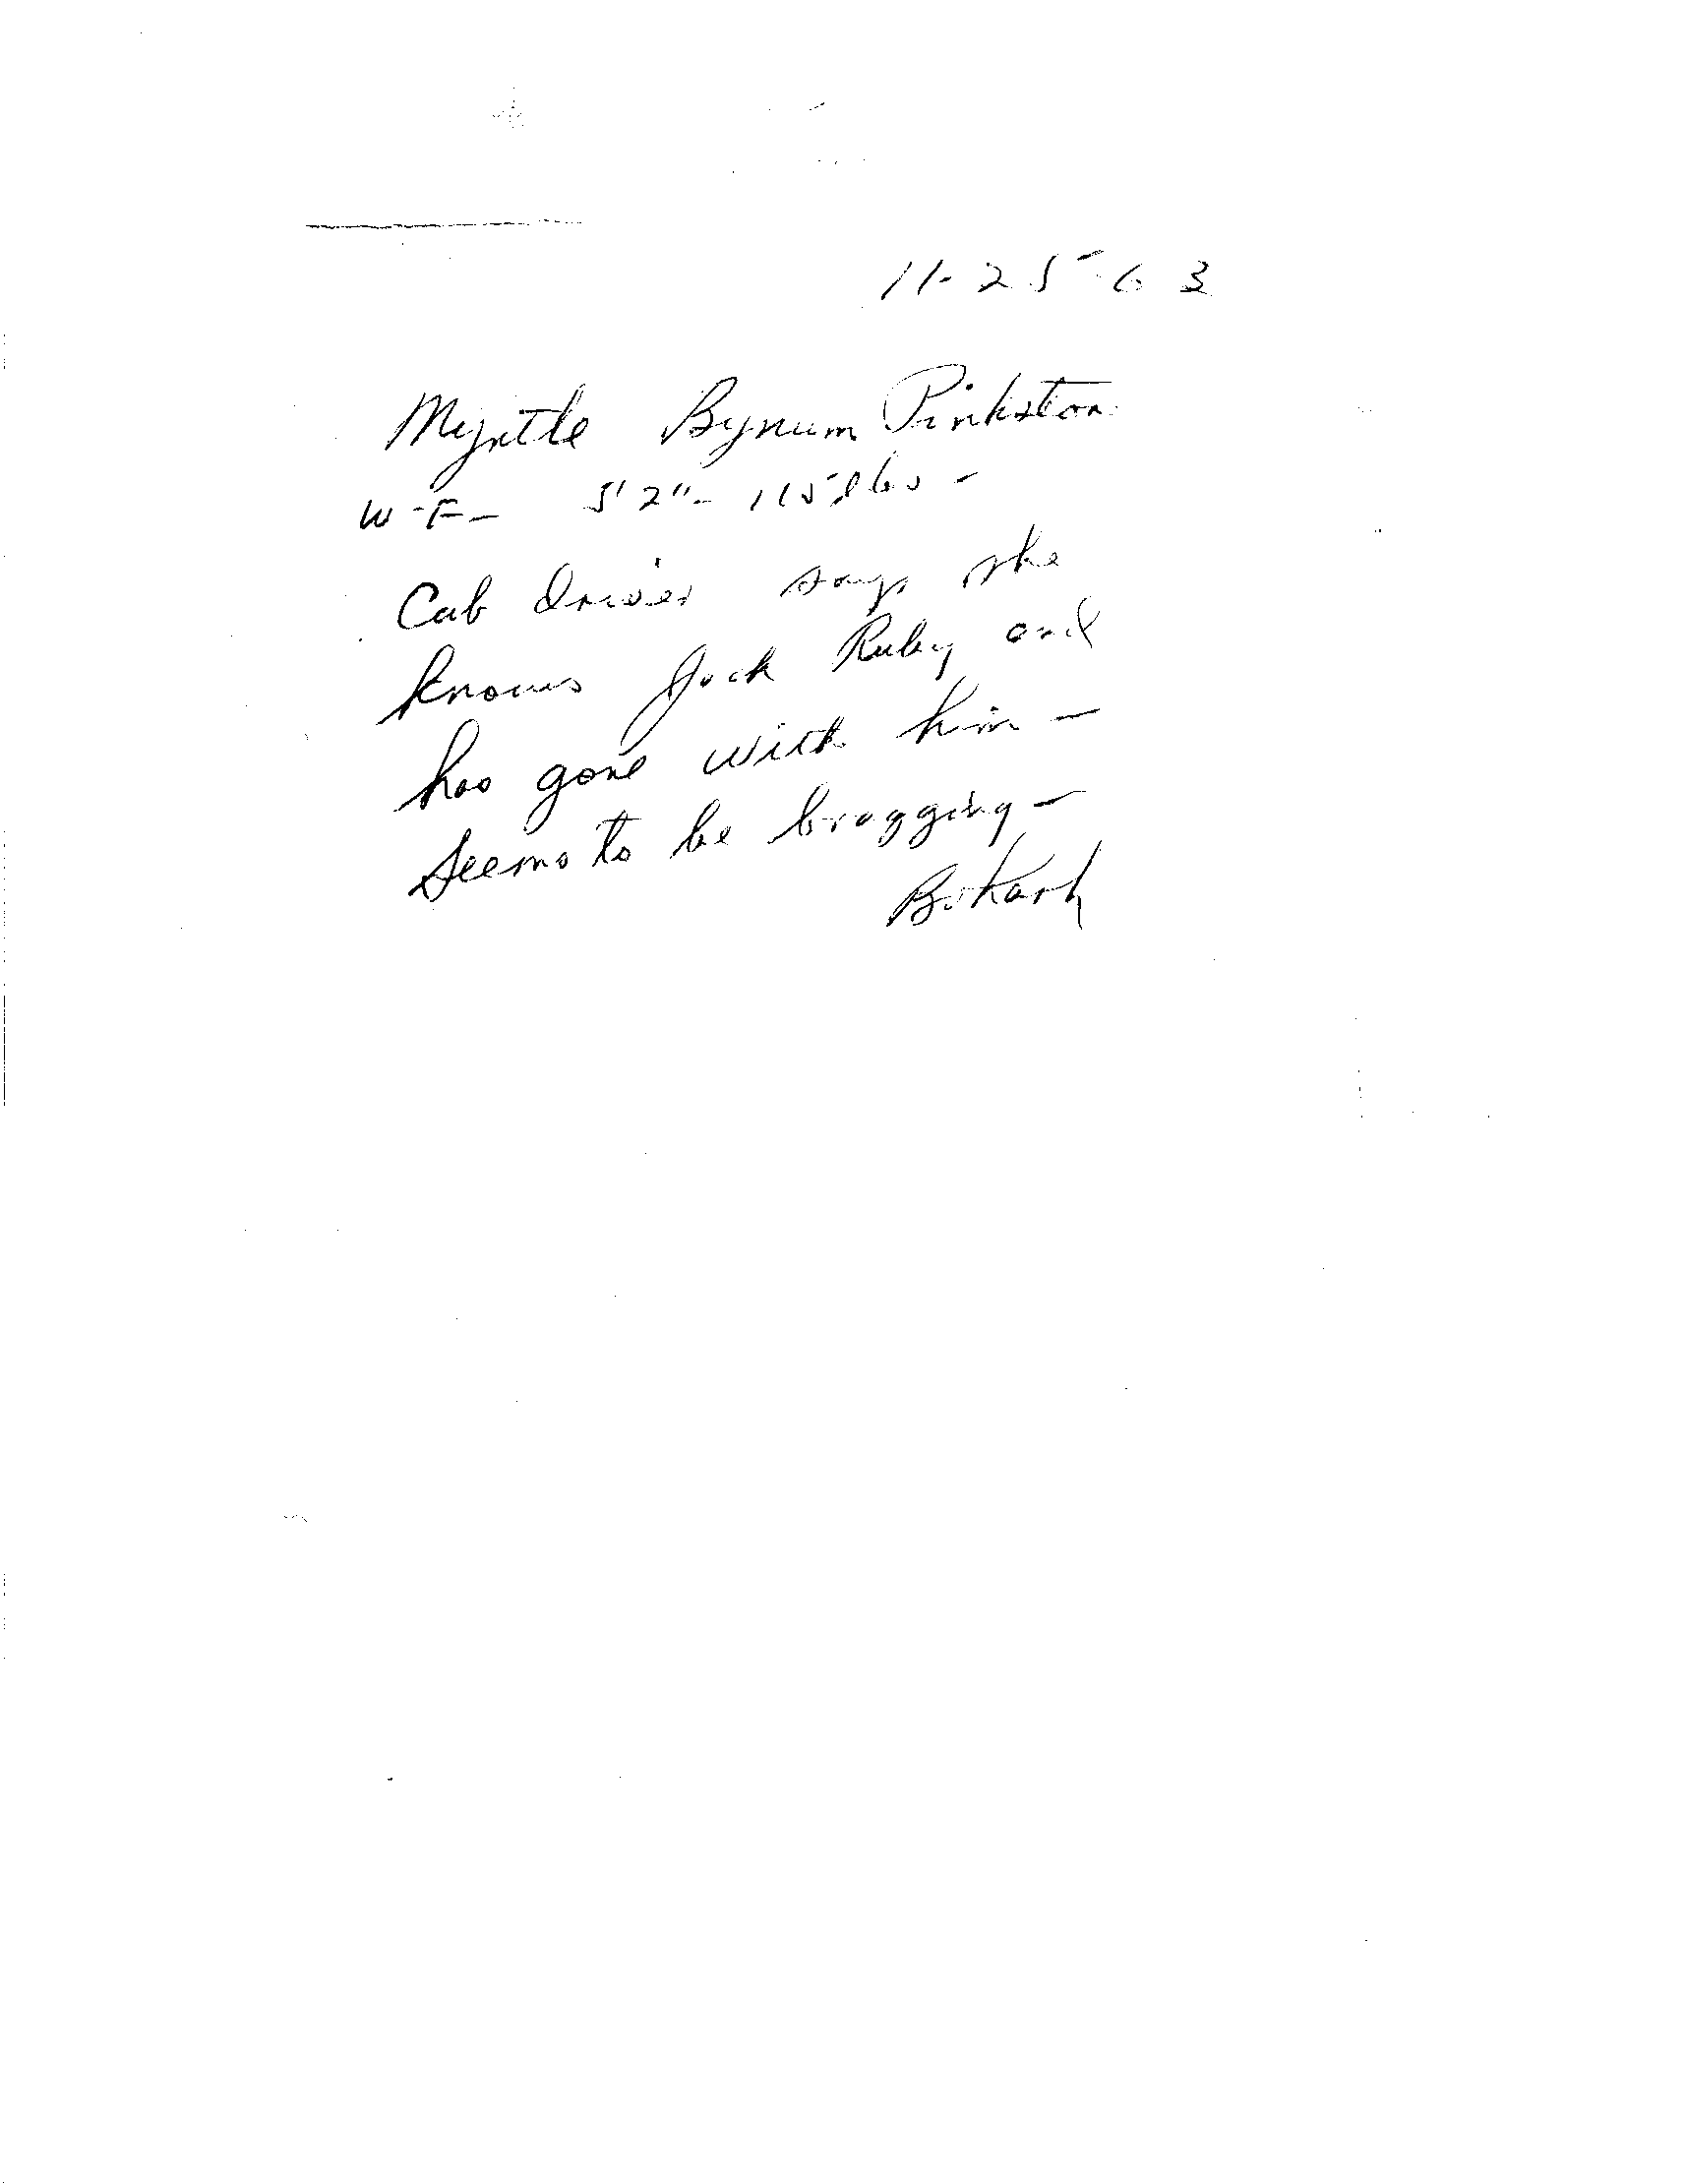 11-25-63
Myrtle Bynum Pinkston
W-F- 5'2"- 115 lbs -
Cab Driver says she
knows Jack Ruby and
has gone with him -
seems to be bragging -